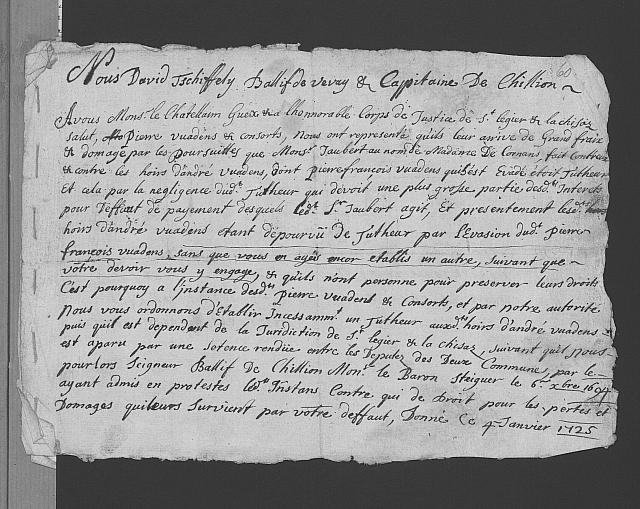 60.
Nous David Tschiffely Ballif de vevay & Capitaine De Chillion
A vous Mons.r le Chatellain Gueix & a l'honnorable Corps de Justice de S.t legier & la chisaz
Salut, Pierre vuadens & Consorts, Nous ont representé quils leur arrive de Grand fraix
& domage par les poursuittes que Mons.r Jaubert au nom de Madame De Cornans, fait Contre eux
& contre les hoirs d'andré vuadens, dont pierre françois vuadens quil s'est Evadé étoit Tutheur
Et cela par la negligence dud.t Tutheur qui devoit une plus grosse partie desd.ts Interets
pour l'effait de payement desquels led.t S.r Jaubert agit, Et presentement lesd.ts hoirs
hoirs d'andré vuadens étant dépourvu de Tutheur par l'Evasion dud.t pierre
françois vuadens, sans que vous en ayés encor etablis un autre, suivant que
vôtre devoir vous y engage, & qu'ils n'ont personne pour preserver leurs droits
C'est pourquoy a l'instance desd.ts pierre vuadens & Consorts, et par notre autorité
Nous vous ordonnons d'Etablir Incessamm.t un Tutheur auxd.ts hoirs d'andré vuadens
puis quil est dependent de la Juridiction de S.t legier & la chisaz, suivant quil nous
est aparu par une sotence rendüe entre les Deputez des Deux Commune, par le
pour lors Seigneur Ballif de Chillion Mons.r le Baron Steiguer le 6.e xbre 1694
ayant admis en protestes les.ts Instans Contre qui de droit pour les pertes et
Domages quileurs Survient par vôtre deffaut, Donné Ce 4 Janvier 1725